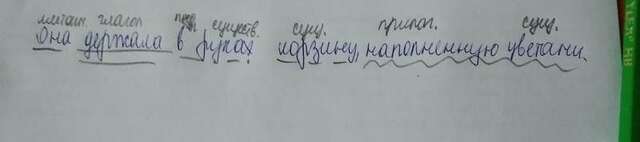 местоим. глагол пред. существ. сущ. прилаг. сущ.
Она держала в руках корзину, наполненную цветами.